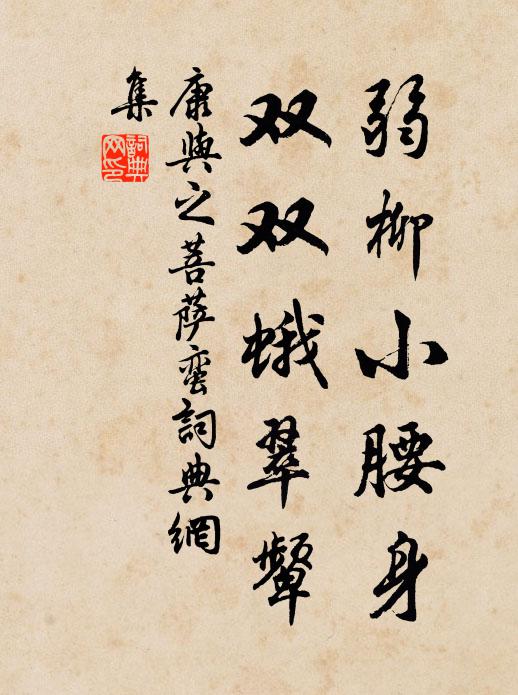 弱柳小腰身
双双蛾翠颦
康與之菩萨蛮詞典網
集
詞典
网印